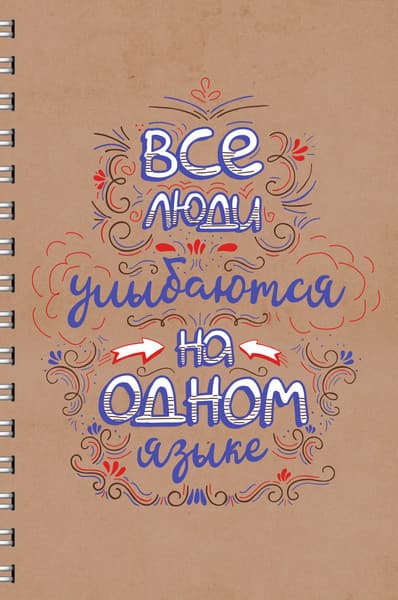 ВСЕ
ЛЮДИ
улыбаются
на
ОДНОМ
языке